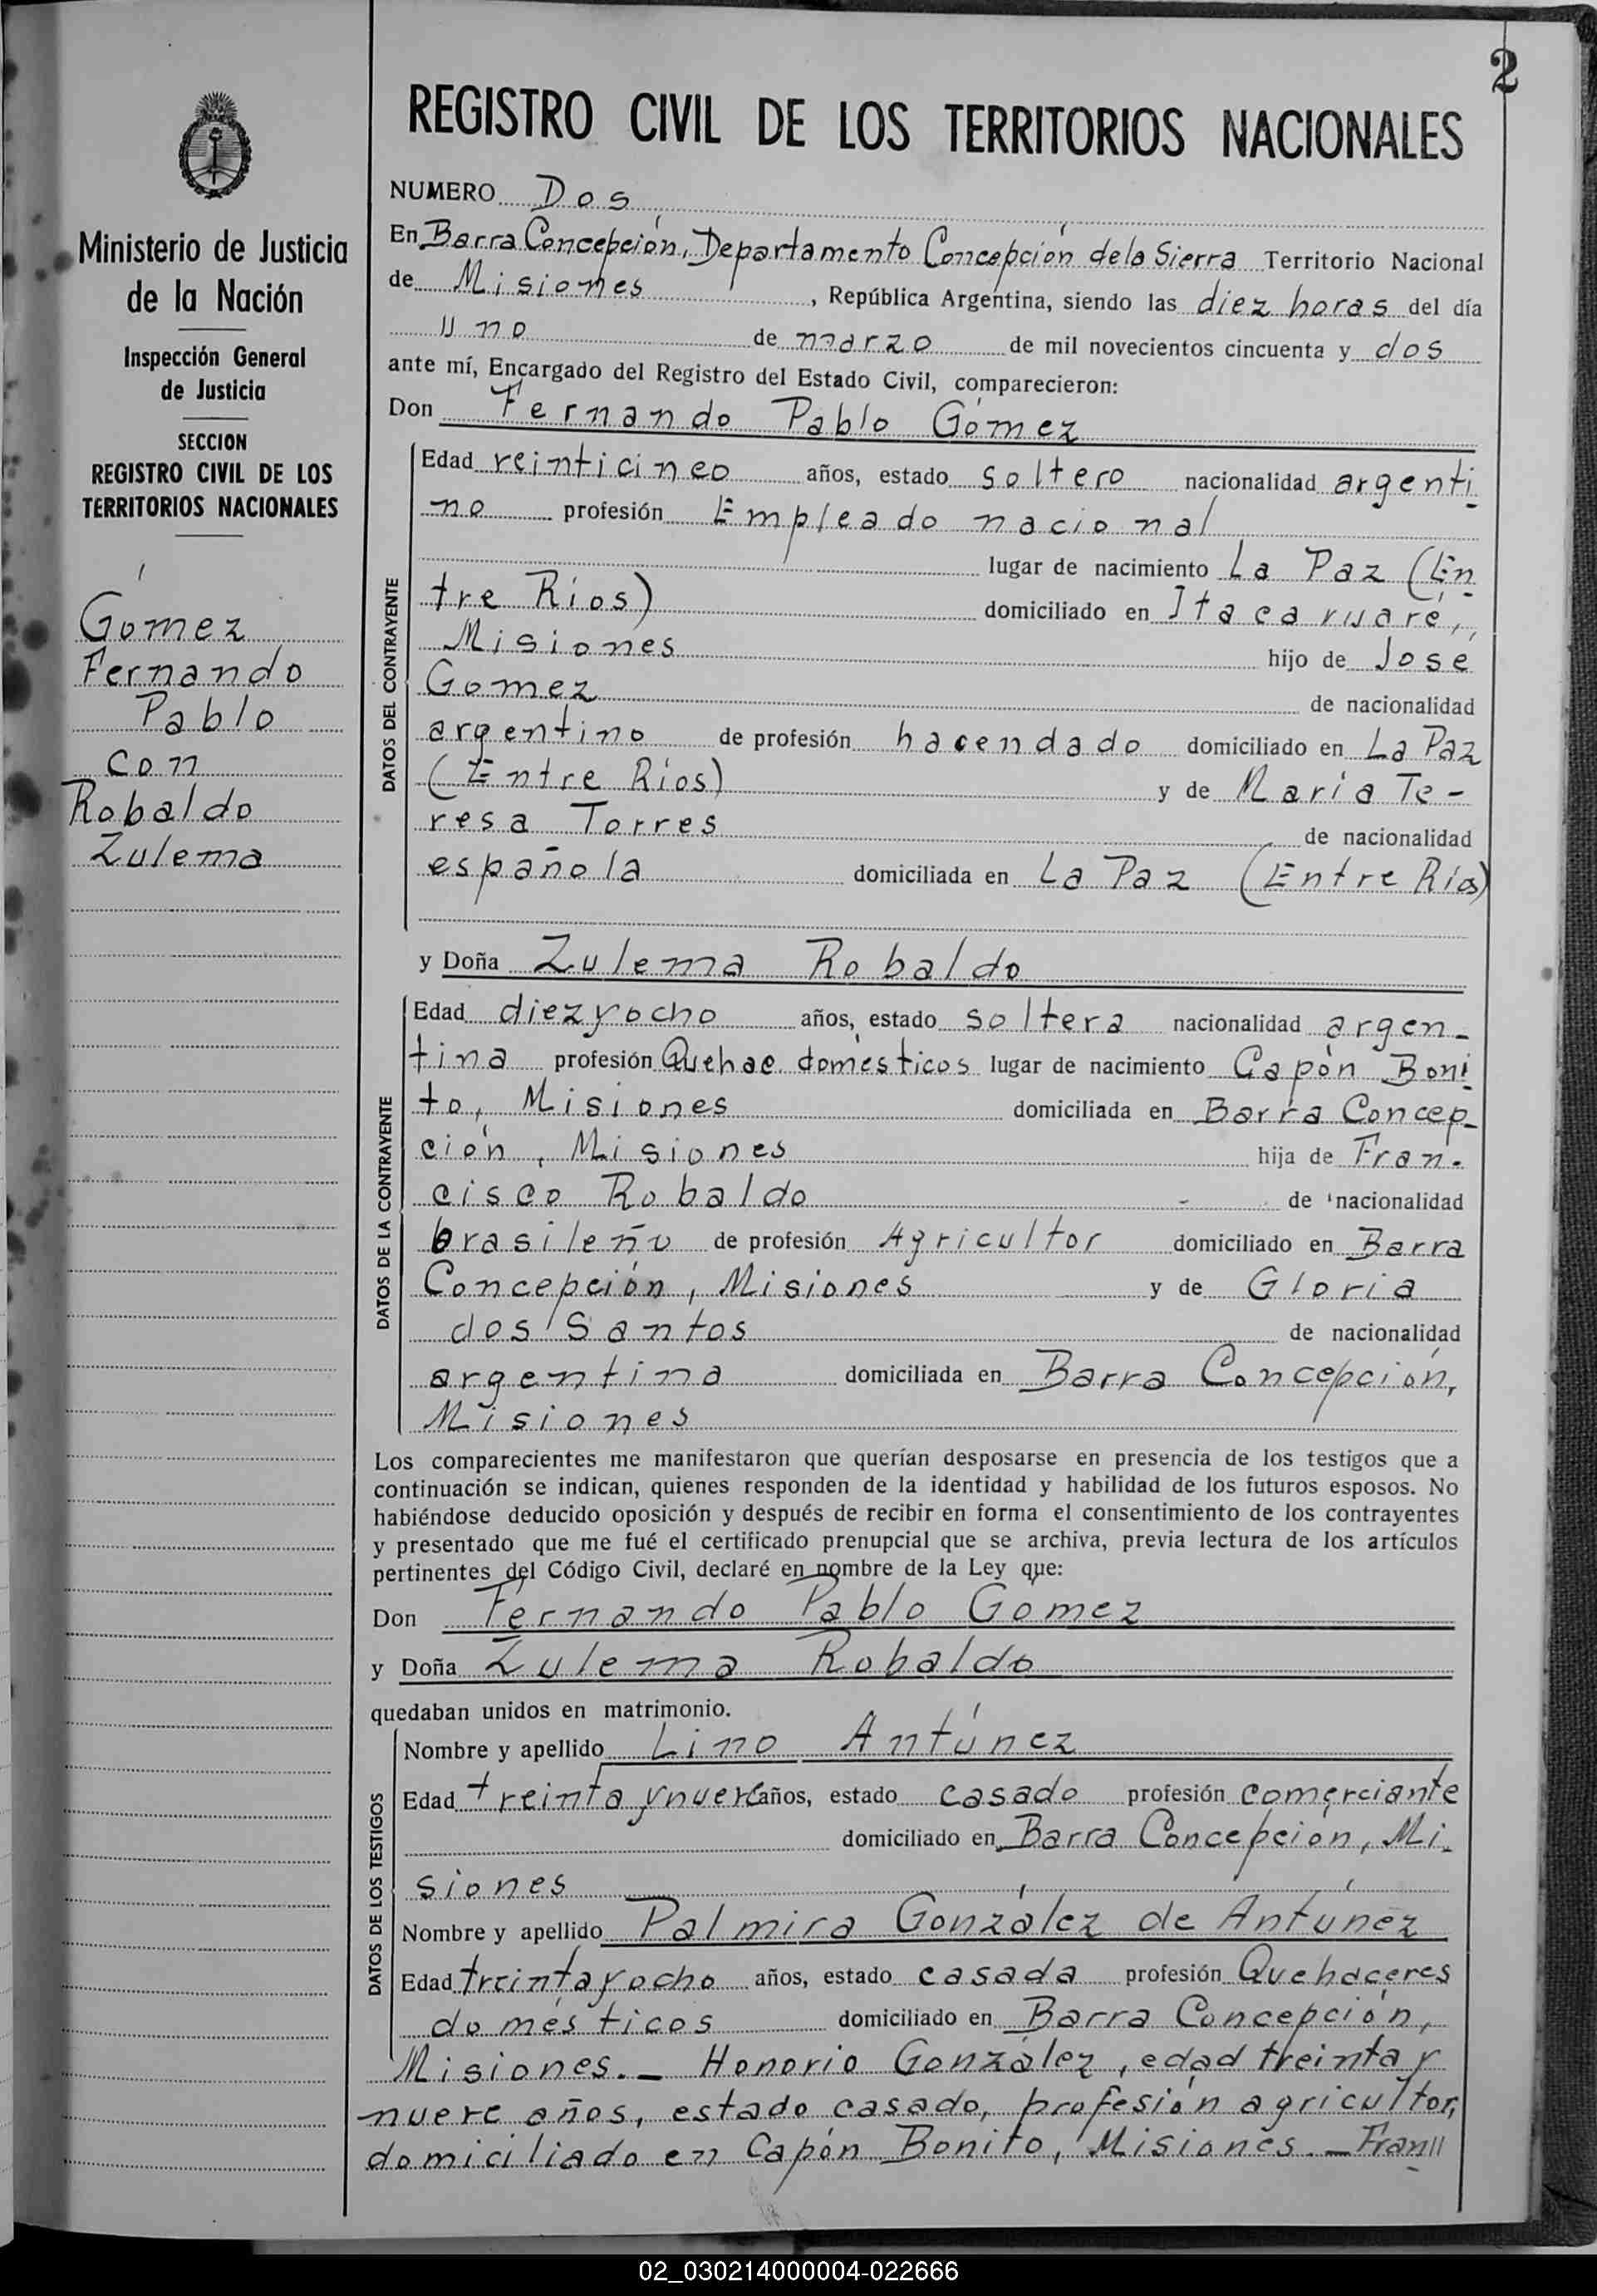 2
REGISTRO CIVIL DE LOS TERRITORIOS NACIONALES
Ministerio de Justicia
de la Nación
Inspección General
de Justicia
SECCION
REGISTRO CIVIL DE LOS
TERRITORIOS NACIONALES
Gómez
Fernando
Pablo
con
Robaldo
Zulema
NUMERO Dos
En Barra Concepción, Departamento Concepción de la Sierra Territorio Nacional
de Misiones, República Argentina, siendo las diez horas del día
uno de marzo de mil novecientos cincuenta y dos
ante mí, Encargado del Registro del Estado Civil, comparecieron:
Don Fernando Pablo Gómez
DATOS DEL CONTRAYENTE
Edad veinticinco años, estado soltero nacionalidad argenti
no profesión Empleado nacional
lugar de nacimiento La Paz (En
tre Ríos) domiciliado en Itacaruaré,
Misiones hijo de José
Gomez de nacionalidad
argentino de profesión hacendado domiciliado en La Paz
(Entre Ríos) y de María Te-
resa Torres de nacionalidad
española domiciliada en La Paz (Entre Ríos)
y Doña Zulema Robaldo
DATOS DE LA CONTRAYENTE
Edad diezyocho años, estado soltera nacionalidad argen-
tina profesión Quehac. domésticos lugar de nacimiento Capón Boni
to, Misiones domiciliada en Barra Concep-
ción, Misiones hija de Fran-
cisco Robaldo de nacionalidad
brasileño de profesión Agricultor domiciliado en Barra
Concepción, Misiones y de Gloria
dos Santos de nacionalidad
argentina domiciliada en Barra Concepción,
Misiones
Los comparecientes me manifestaron que querían desposarse en presencia de los testigos que a
continuación se indican, quienes responden de la identidad y habilidad de los futuros esposos. No
habiéndose deducido oposición y después de recibir en forma el consentimiento de los contrayentes
y presentado que me fué el certificado prenupcial que se archiva, previa lectura de los artículos
pertinentes del Código Civil, declaré en nombre de la Ley que:
Don Fernando Pablo Gomez
y Doña Zulema Robaldo
quedaban unidos en matrimonio.
DATOS DE LOS TESTIGOS
Nombre y apellido Lino Antúnez
Edad treinta y nueve años, estado casado profesión comerciante
domiciliado en Barra Concepción, Mi-
siones
Nombre y apellido Palmira González de Antúnez
Edad treinta y ocho años, estado casada profesión Quehaceres
domésticos domiciliado en Barra Concepción,
Misiones.- Honorio González, edad treinta y
nueve años, estado casado, profesión agricultor,
domiciliado en Capón Bonito, Misiones.- Fran//
02_030214000004-022666